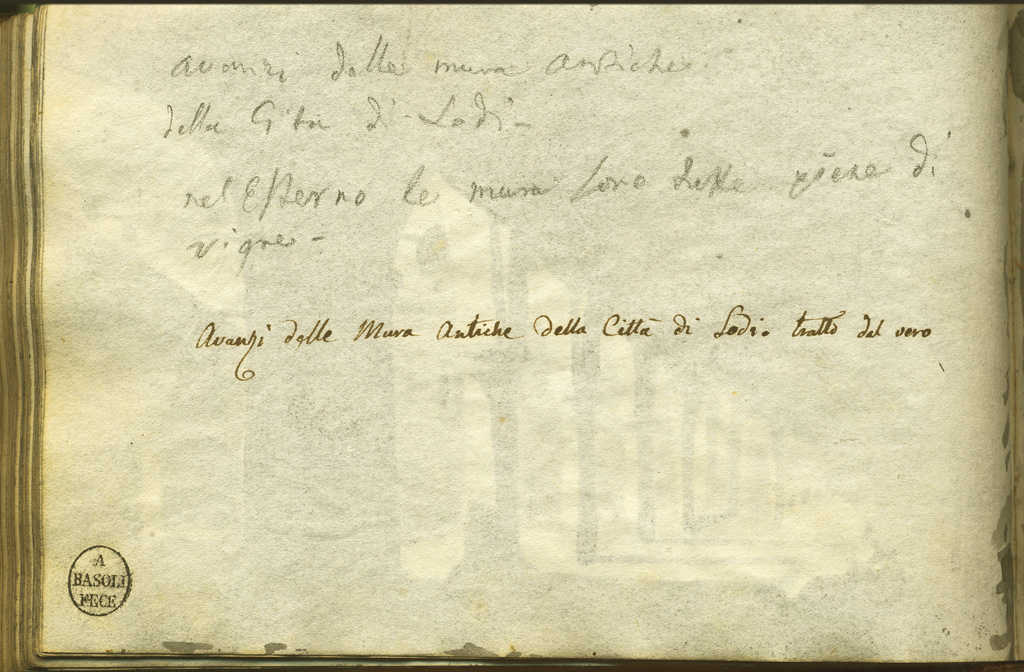 avanzi delle mura antiche
della Cita di - Lodi -
nel Esterno le mura sono tutte piene di
vigne -
Avanzi delle Mura Antiche della Città di Lodi. tratto dal vero
A
BASOLI
FECE